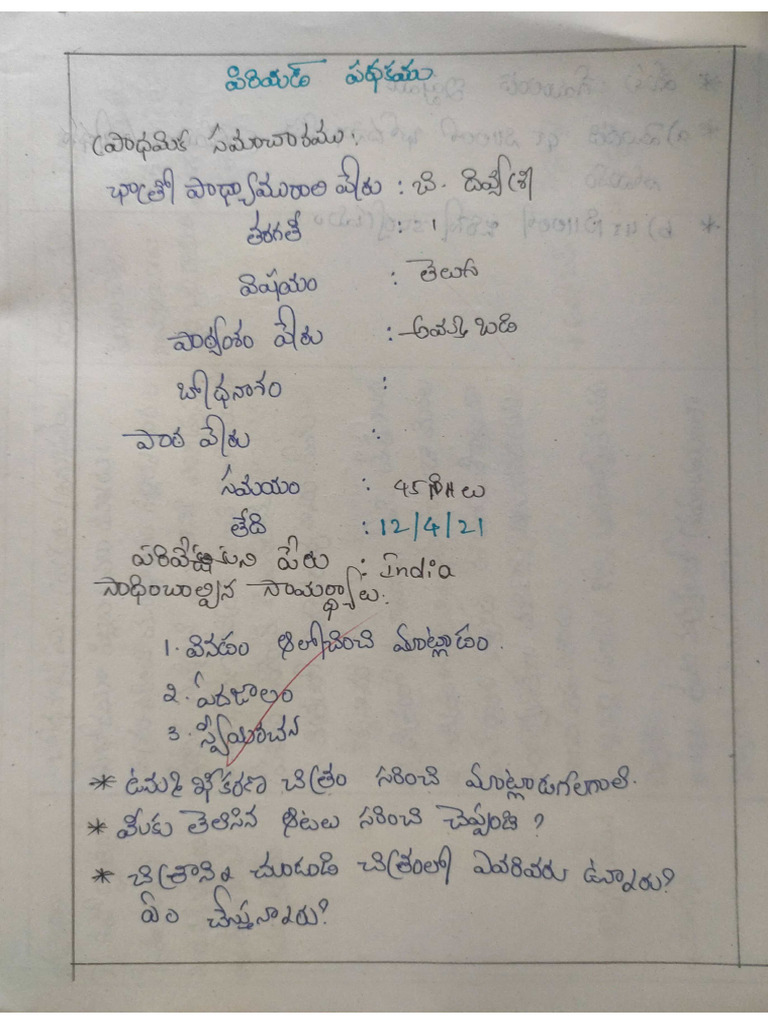 పిరియడ్ పథకము
ప్రాథమిక సమాచారము:
ఛాత్రోపాధ్యాయురాలి పేరు : బి. దివ్యశ్రీ
తరగతి : 1
విషయం : తెలుగు
పాఠ్యాంశం పేరు : అమ్మ ఒడి
బోధనాంశం :
పాఠ పేరు :
సమయం : 45 నిІІలు
తేది : 12/4/21
పేరు : India
సాధించాల్సిన సామర్థ్యాలు:
1. వినడం ఆలోచించి మాట్లాడం.
2. పదజాలం
3. స్వీయరచన
* చిత్రం సరించి మాట్లాడగలగాలి.
* మీకు తెలిసిన ఆటలు సరించి చెప్పండి?
* చిత్రాన్ని చూడండి చిత్రంలో ఎవరెవరు ఉన్నారు?
ఏం చేస్తున్నారు?